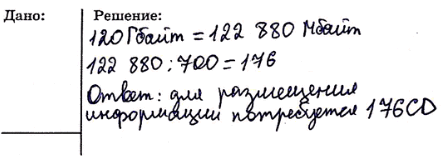 Дано: Решение:
120 Гбайт = 122 880 Мбайт
122 880 : 700 = 176
Ответ: для размещения
информации потребуется 176 CD